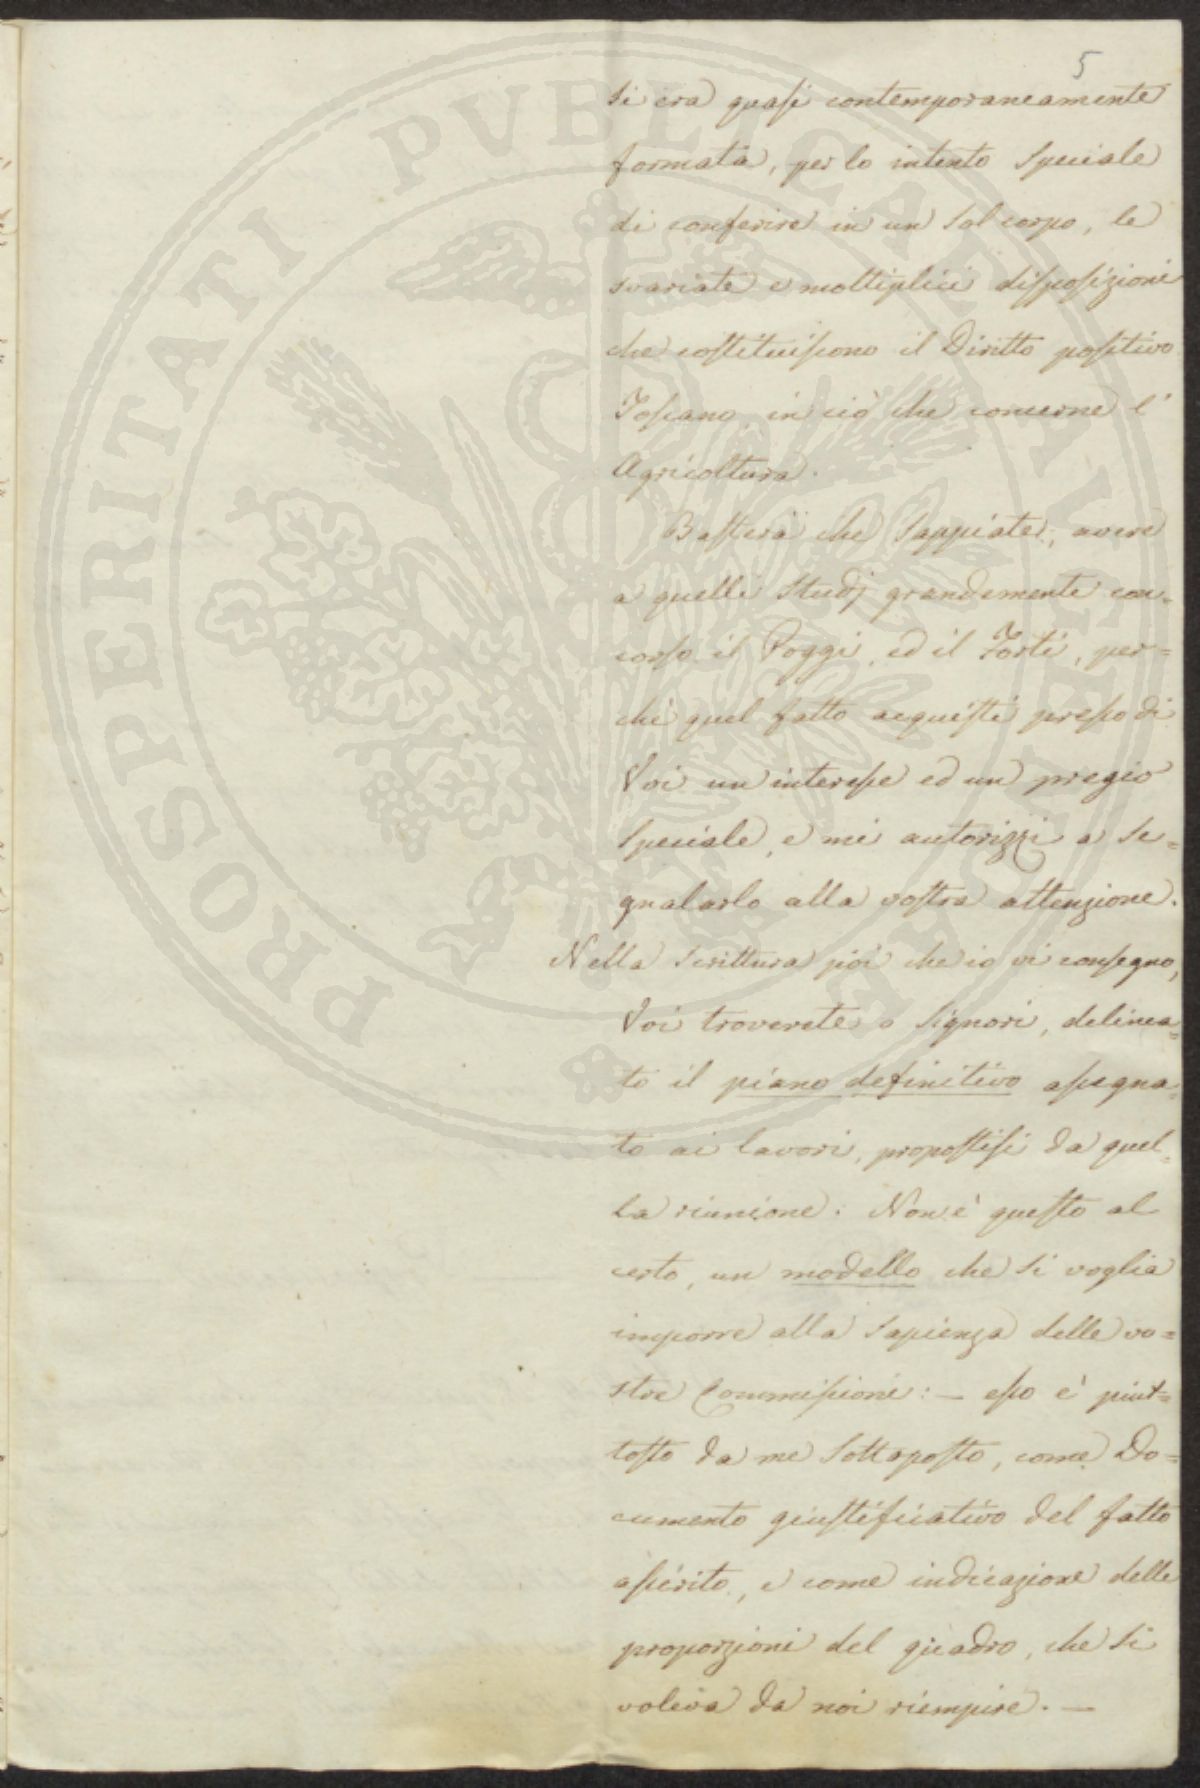 5
si era quasi contemporaneamente
formata, per lo intento speciale
di conferire in un sol corpo, le
svariate e moltiplici disposizioni
che costituiscono il Diritto positivo
Toscano in ciò che concerne l'
Agricoltura.
Basterà che sappiate, avere
a quelli studj grandemente con=
corso il Poggi, ed il Forti, per=
chè quel fatto acquisti presso di
Voi un interesse ed un pregio
speciale, e mi autorizzi a se=
gnalarlo alla vostra attenzione.
Nella scrittura poi che io vi consegno,
Voi troverete o Signori, delinea=
to il piano definitivo assegna=
to ai lavori, propostisi da quel=
la riunione: Non è questo al
certo, un modello che si voglia
imporre alla sapienza delle vo=
stre Commissioni: — esso è piut=
tosto da me sottoposto, come Do=
cumento giustificativo del fatto
asserito, e come indicazione delle
proporzioni del quadro, che si
voleva da noi riempire. —
PROSPERITATI PVBLICAE AVGENDAE